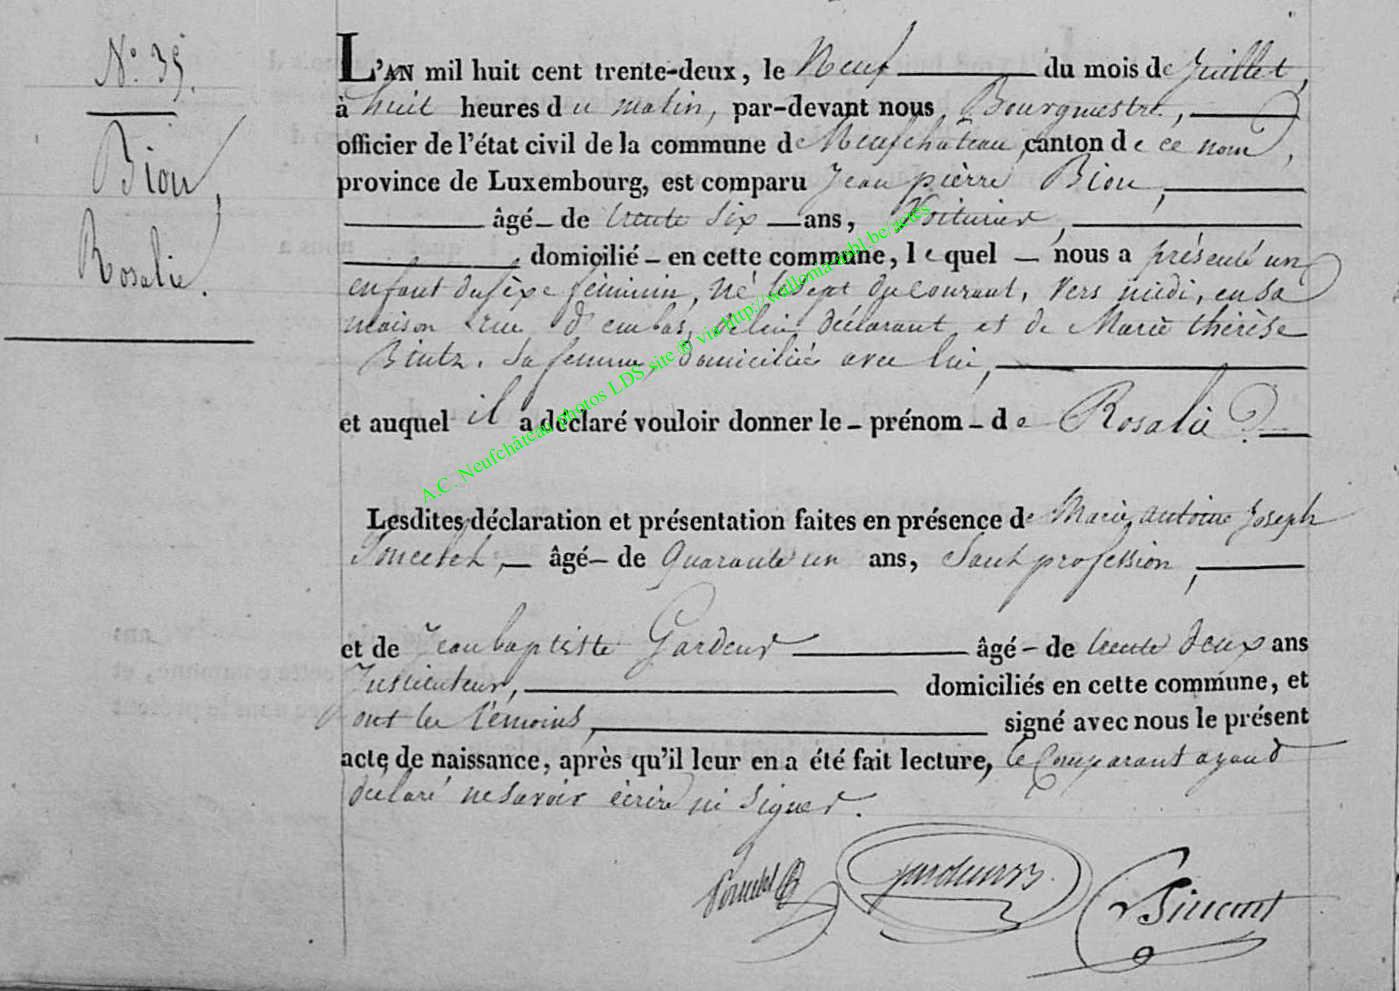 N.° 35.
Biou,
Rosalie.
L'AN mil huit cent trente-deux, le Neuf du mois de Juillet,
à huit heures du matin, par-devant nous Bourgmestre,
officier de l'état civil de la commune de Neufchâteau, canton de ce nom,
province de Luxembourg, est comparu Jean pierre Biou,
âgé de trente six ans, Voiturier,
domicilié en cette commune, lequel nous a présenté un
enfant du sexe féminin, né le Sept du courant, vers midi, en sa
maison rue d'embas, de lui déclarant et de Marie thérèse
Bintz, sa femme, domiciliée avec lui,
et auquel il a déclaré vouloir donner le prénom de Rosalie
Lesdites déclaration et présentation faites en présence de Marie antoine Joseph
Poncelet, âgé de Quarante un ans, Sans profession,
et de Jean baptiste Gardeur âgé de trente deux ans
Instituteur, domiciliés en cette commune, et
ont les témoins, signé avec nous le présent
acte de naissance, après qu'il leur en a été fait lecture, le Comparant ayant
déclaré ne savoir écrire ni Signer.
A.C. Neufchâteau photos LDS site ® via http://wallonia-asbl.be/actes